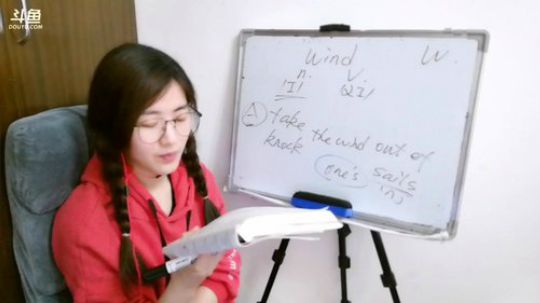 斗鱼
DOUYU.COM
wind W.
n. V.
/I/ /aI/
A take the wind out of
knock
one's sails
(n)